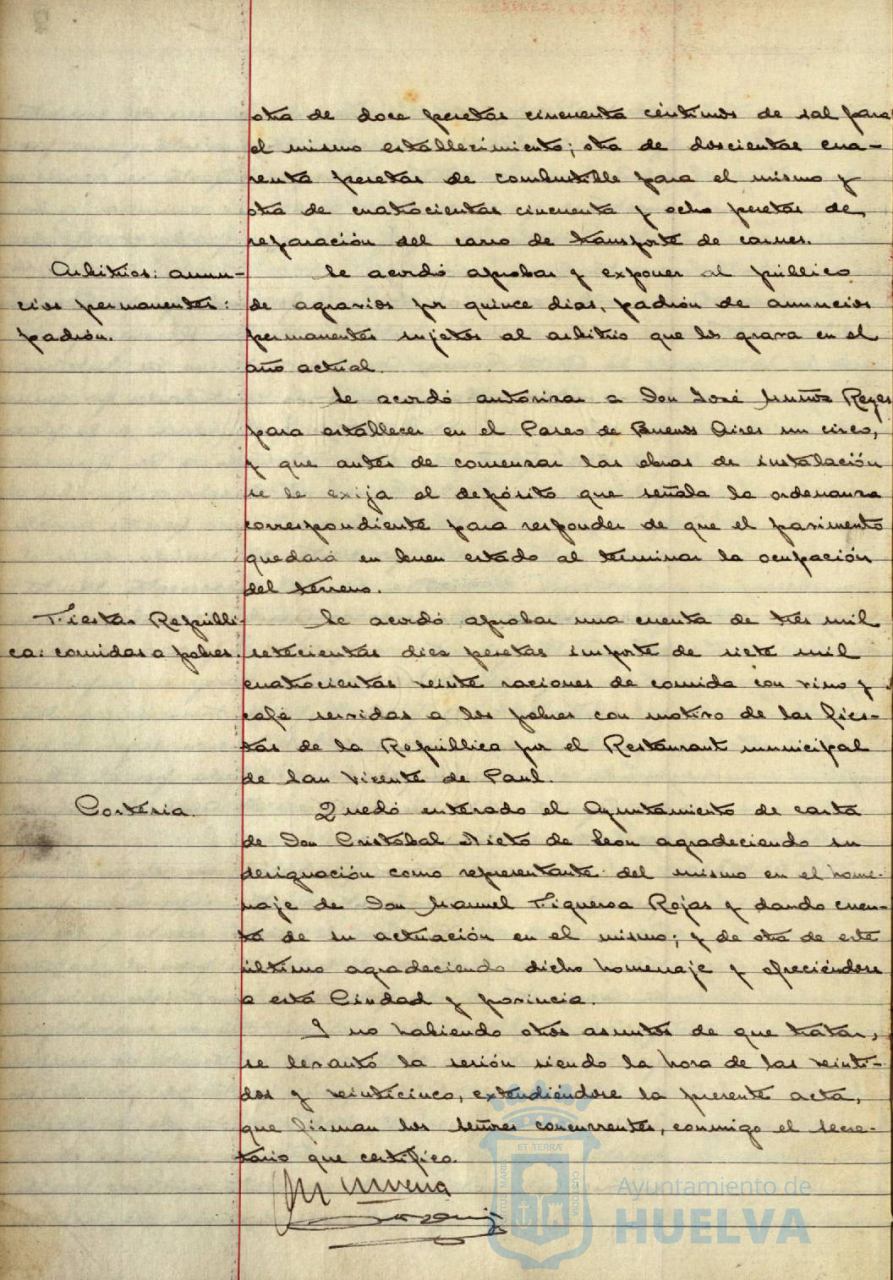 otra de doce pesetas cincuenta céntimos de sal para
el mismo establecimiento; otra de doscientas cua-
renta pesetas de combustible para el mismo y
otra de cuatrocientas cincuenta y ocho pesetas de
reparación del carro de transporte de carnes.
Arbitrios: anun-
cios permanentes:
padrón.
Se acordó aprobar y exponer al público
de agravios por quince dias, padrón de anuncios
permanentes sujetos al arbitrio que los grava en el
año actual.
Se acordó autorizar a Don José Muñoz Reyes
para establecer en el Paseo de Buenos Aires un circo,
y que antes de comenzar las obras de instalación
se le exija el depósito que señala la ordenanza
correspondiente para responder de que el pavimento
quedará en buen estado al terminar la ocupación
del terreno.
Fiestas Repúbli-
ca: comidas a pobres.
Se acordó aprobar una cuenta de tres mil
setecientas diez pesetas importe de siete mil
cuatrocientas veinte raciones de comida con vino y
café servidas a los pobres con motivo de las fies-
tas de la República por el Restaurant municipal
de San Vicente de Paul.
Cortesia.
Quedó enterado el Ayuntamiento de carta
de Don Cristóbal Nieto de Leon agradeciendo su
designación como representante del mismo en el home-
naje de Don Manuel Figueroa Rojas y dando cuen-
ta de su actuación en el mismo; y de otra de este
último agradeciendo dicho homenaje y ofreciéndose
a esta Ciudad y provincia.
Y no habiendo otros asuntos de que tratar,
se levantó la sesión siendo la hora de las veinti-
dos y veinticinco, extendiéndose la presente acta,
que firman los señores concurrentes, conmigo el secre-
tario que certifico.
Ayuntamiento de
HUELVA